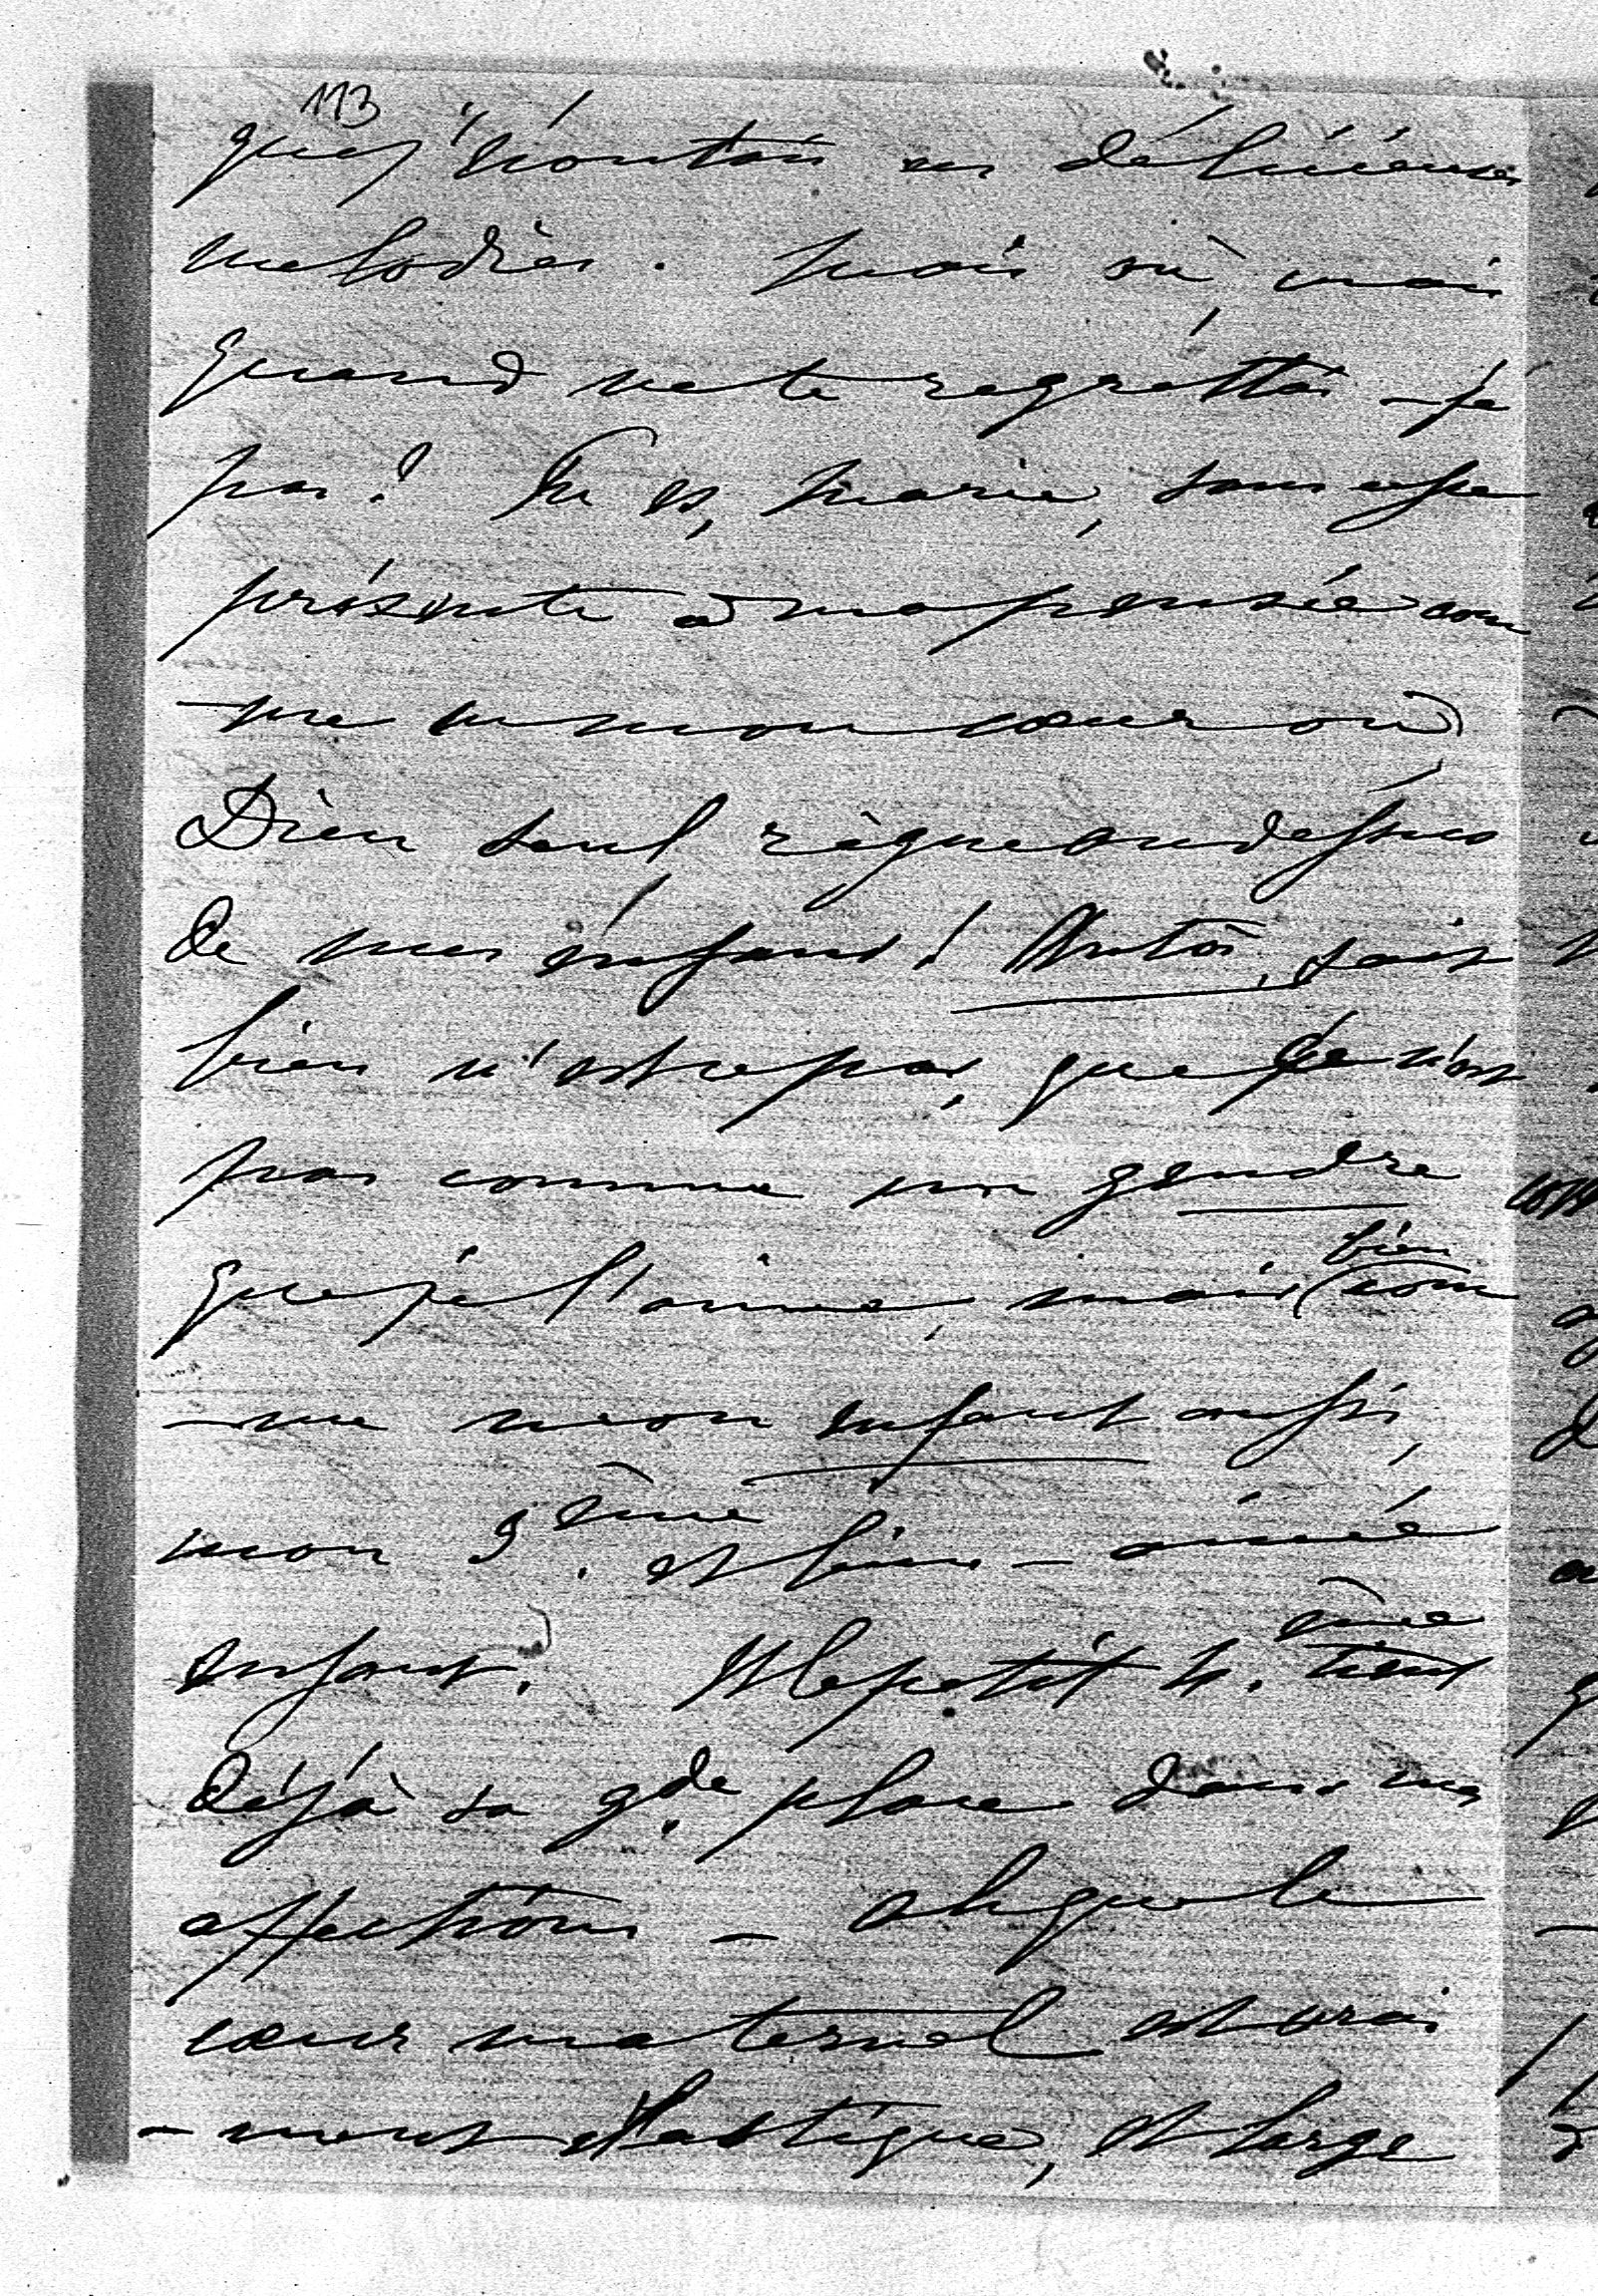 113
que j'écoutais ces délicieuses
melodies. Mais où, mais
quand ne te regrettai-je
pas! Tu es, Marie, sans cesse
présente à ma pensée com
-me en mon cœur où
Dieu seul règne audessus
de mes enfans! Antoi, sait
bien n'est-ce pas, que ce n'est
pas comme un gendre
que je l'aime, mais bien com
-me mon enfant aussi,
mon 3ème. et bien-aimé
enfant. Et le petit 4.ème tient
déjà sa gde. place dans mes
affections - ah que le
cœur maternel est vrai
-ment élastique, et large